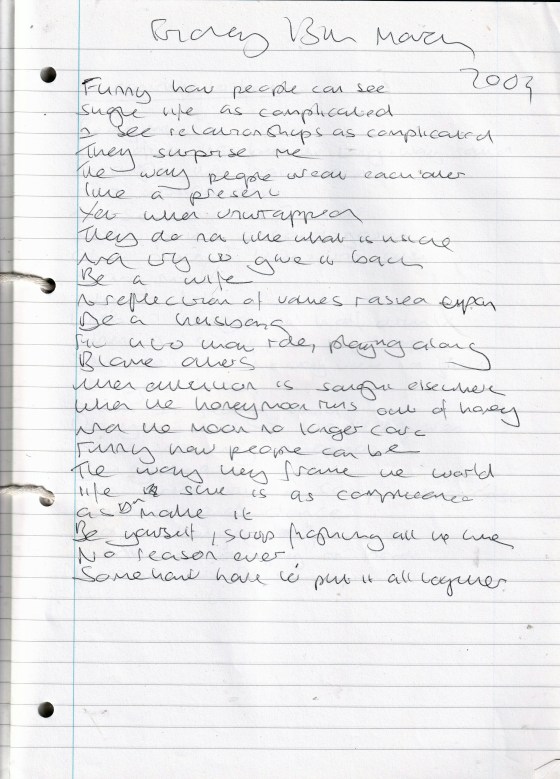 Friday 13th March
2009
Funny how people can see
single life as complicated
I see relationships as complicated
They surprise me
The way people wear each other
like a present
Yet when unwrapped
They do not like what is inside
And try to give it back
Be a wife
A reflection of values raised upon
Be a husband
Fit into that role, playing along
Blame others
When attention is sought elsewhere
When the honeymoon runs out of honey
And the moon no longer cares
Funny how people can be
The way they frame the world
life is sure is as complicated
as U make it
Be yourself, stop fighting all the time
No reason ever
Somehow have to put it all together